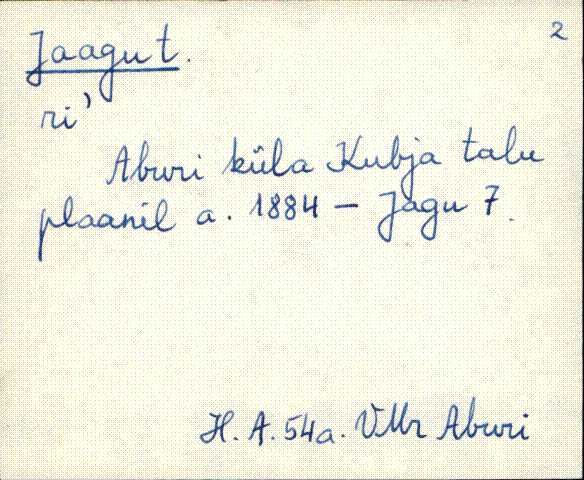 2
Jaagu t.
ri'
Aburi küla Kubja talu
plaanil a. 1884 – Jagu 7.
H. A. 54a. VMr Aburi